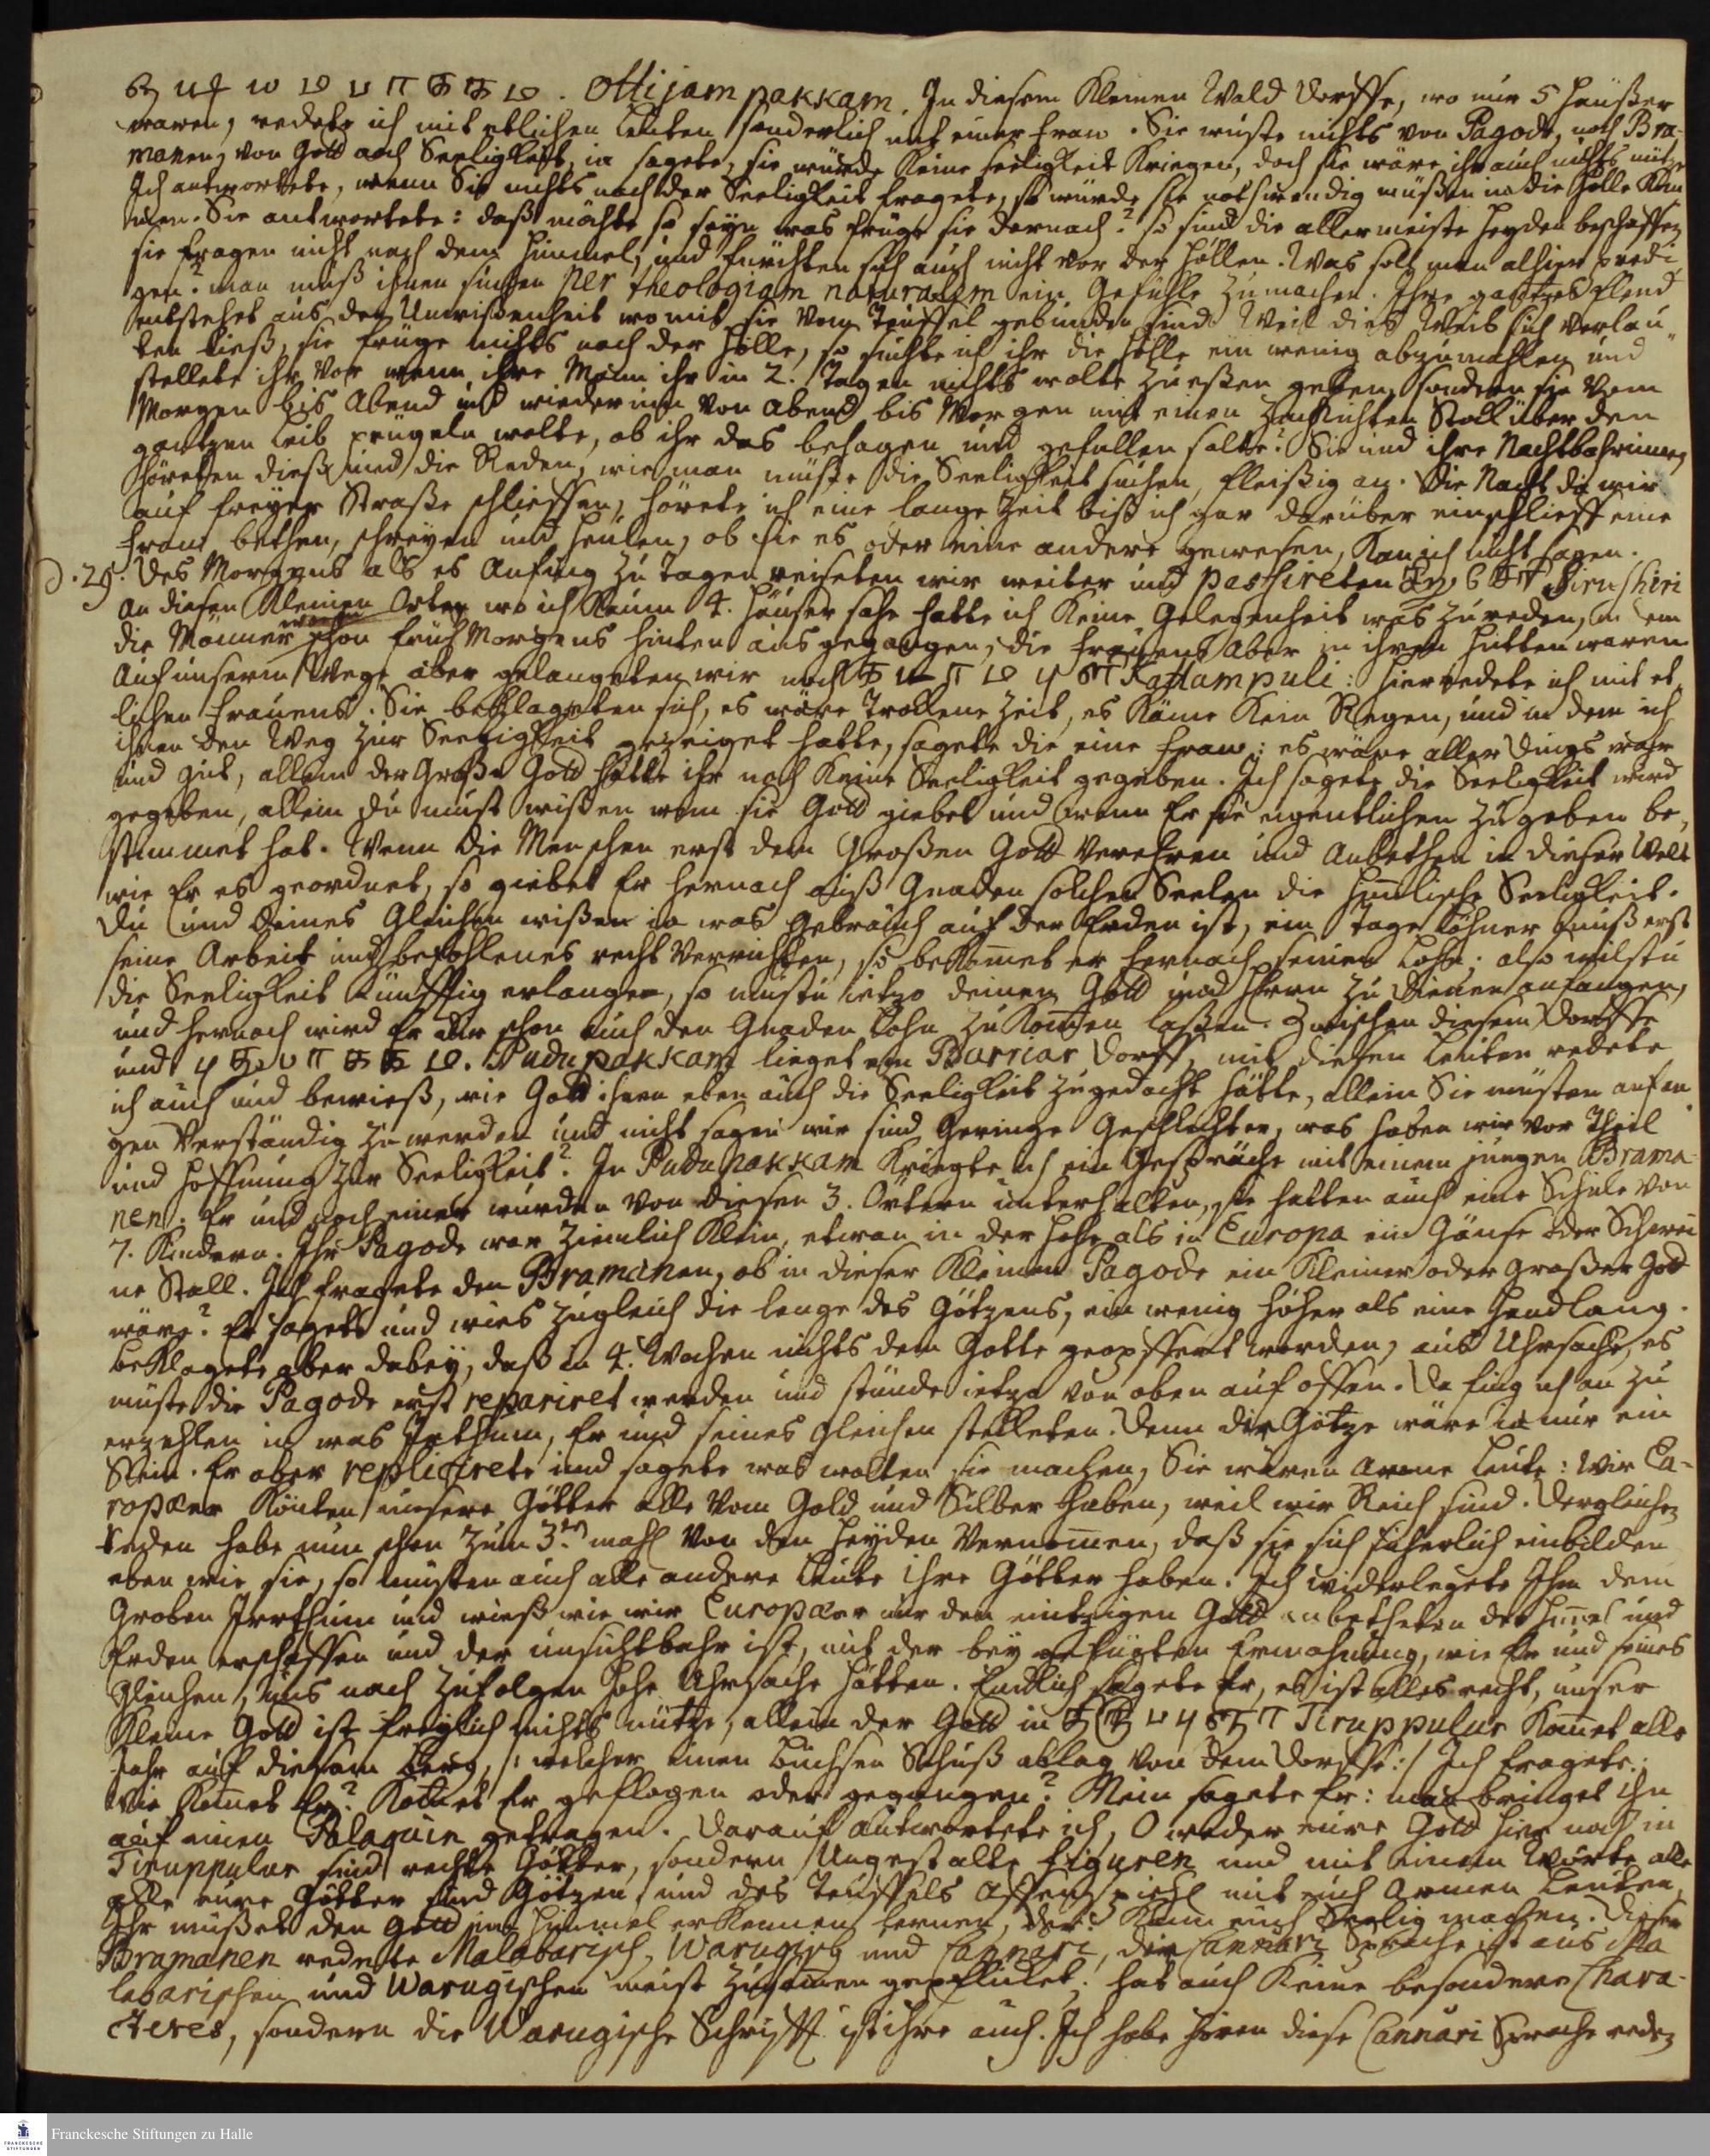 ஒட்டியமபாக்கம. Ottijampakkam. In diesem Kleinen Wald Dorffe, wo nur 5 Häußer
waren, redete ich mit etlichen Leuten sonderlich mit einer Frau. Sie wuste nichts von Pagode, noch Bra-
manen, von Gott noch Seeligkeit, ia sagete, sie würde keine Seeligkeit kriegen, doch sie wäre ihr auch nichts nütze
Ich antwortete, wenn Sie nichts nach der Seeligkeit fragete, so würde sie nothwendig müßen in die Hölle kom
men. Sie antwortete: daß möchte so seyn was früge sie darnach? so sind die allermeiste Heyden beschaffen
sie fragen nicht nach dem Himmel, und fürchten sich auch nicht vor der Höllen. Was soll man alhier predi
gen? man muß ihnen suchen per theologiam naturalem ein Gefühle zu machen. Ihre gantzes Elend
entstehet aus der Unwißenheit womit sie vom Teuffel gebunden sind. Weil dies Weib sich verlau-
ten ließ, sie früge nichts nach der Hölle, so suchte ich ihr die Hölle ein wenig abzumahlen und
stellete ihr vor wenn ihre Mann ihr in 2. Tagen nichts wolte zu eßen geben, sondern sie vom
Morgen bis Abend und wiederum von Abend bis Morgen mit einen Stock über den
gantzen Leib prügeln wolte, ob ihr das behagen und gefallen solte? Sie und ihre Nachtbahrinnen
höreten dieß und die Reden, wie man müste die Seeligkeit suchen, fleißig an. Die Nacht da wir
auf freyer Straße schlieffen, hörete ich eine lange Zeit biß ich gar darüber einschlieff eine
Frau bethen, schreyen und heulen, ob sie es oder eine andere gewesen, kan ich nicht sagen.
d. 29. Des Morgens als es Anfing zu tagen reiseten wir weiter und passireten Sirusheri
An diesen Kleinen Orten wo ich kaum 4. Häuser sahe hatte ich keine Gelegenheit was zu reden, in dem
die Männer waren schon früh Morgens hinten aus gegangen, die Frauens aber in ihren Hütten waren
Auf unserm Wege aber gelangeten wir nach Kattampuli: Hier redete ich mit et-
lichen Frauens. Sie beklageten sich, es wäre trockene Zeit, es käme kein Regen, und in dem ich
ihnen den Weg zur Seeligkeit gezeiget hatte, sagete die eine Frau: es wäre aller Dings wahr
und gut, allein der Große Gott hätte ihr noch keine Seeligkeit gegeben. Ich sagete die Seeligkeit wird
gegeben, allein du must wißen wem sie Gott giebet und wenn Er sie eigentlichen zu geben be-
stimmet hat. Wenn die Menschen erst dem Großen Gott verehren und Anbethen in dieser Welt
wie Er es geordnet, so giebet Er hernach auß Gnaden solchen Seelen die himlische Seeligkeit.
Du und deines Gleichen wißen ia was Gebrauch auf der Erden ist, ein Tage löhner muß erst
seine Arbeit und befohlenes recht verrichten, so bekommet er hernach seinen Lohn; also wilstu
die Seeligkeit künfftig erlangen, so mustu ietzo deinen Gott und Herrn zu dienen anfangen,
und hernach wird Er dir schon auch den Gnaden Lohn zu kommen laßen. Zwischen diesem Dorffe
und புதுபாக்கம. Pudupakkam lieget ein Barriar Dorff, mit diesen Leuten redete
ich auch und bewieß, wie Gott ihnen eben auch die Seeligkeit zugedacht hätte, allein Sie müsten anfan
gen verständig zu werden und nicht sagen wir sind Geringe Geschlechter, was haben wir vor Theil
und Hoffnung zur Seeligkeit? In Pudupakkam kriegte ich ein Gespräche mit einem jungen Brama-
nen. Er und noch einer wurden von diesen 3. Örtern unterhalten, sie hatten auch eine Schule von
7. Kindern. Ihr Pagode war ziemlich klein, etwan in der Höhe als in Europa ein Gänse oder Schwei
ne Stall. Ich fragete den Bramanen, ob in dieser Kleinen Pagode ein Kleiner oder großer Gott
wäre? Er sagete und wies zugleich die lenge des Götzens, ein wenig höher als eine Handlang.
Beklagete aber dabey, daß in 4. Wochen nichts dem Gotte geopffert worden, aus Uhrsache, es
muste die Pagode erst repariret werden und stünde ietzo von oben auf offen. Da fing ich an zu
erzehlen in was Irthum, Er und seines Gleichen stelleten. Denn der Götze wäre ia nur ein
Stein. Er aber replicirete und sagete was wolten sie machen, Sie wären Arme Leute: Wir Eu-
ropæer könten unsere Götter alle vom Gold und Silber haben, weil wir Reich sind. Dergleichen
Reden habe nun schon zum 3ten mahl von den Heyden vernommen, daß sie sich sicherlich einbilden
eben wie sie, so müsten auch alle andere Leute ihre Götter haben. Ich widerlegete Ihm dem
Groben Irrthum und wieß wie wir Europæer nur den eintzigen Gott anbetheten der Himmel und
Erden erschaffen und der unsichtbahr ist, mit der bey gefügten Ermahnung, wie Er und seines
Gleichen, uns nach zufolgen hohe Uhrsache hätten. Endlich sagete Er, es ist alles recht, unser
Kleine Gott ist freylich nichts nütze, allein der Gott in Tiruppulur kommet alle
Jahr auf diesem Berg, /: welcher einen Büchsen Schuß ablag von dem Dorffe :/ Ich fragete:
Wie kommet Er? kommet Er geflogen oder gegangen? Nein sagete Er: man bringet ihn
auf einen Palaquin getragen. Darauf Antwortete ich, O weder eure Gott hier noch in
Tiruppulur sind rechte Götter, sondern Ungestalte Figuren und mit einem Worte alle
alle eure Götter sind Götzen und des Teuffels Affenspiehl mit euch Armen Leuten,
Ihr müßet den Gott im Himmel erkennen lernen, der kann euch Seelig machen. Dieser
Bramanen redete Malabarisch, Warugisch und Cannari, die Cannari Sprache ist aus Ma
labarischen und Warugischen meist zusammen geflicket; hat auch keine besondere Chara-
cteres, sondern die Warugische Schrifft ist ihre auch. Ich habe hören diese Cannari Sprache reden
Franckesche Stiftungen zu Halle